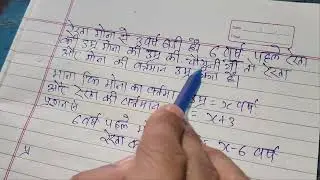 रेखा मोना से 3 वर्ष बड़ी है। 6 वर्ष पहले रेखा
की उम्र मोना की उम्र की चौगुनी थी तो रेखा
और मोना की वर्तमान उम्र क्या है।
माना कि मोना का वर्तमान उम्र = x वर्ष
और रेखा की वर्तमान उम्र = x+3
प्रश्न से
6 वर्ष पहले
रेखा = x-6 वर्ष